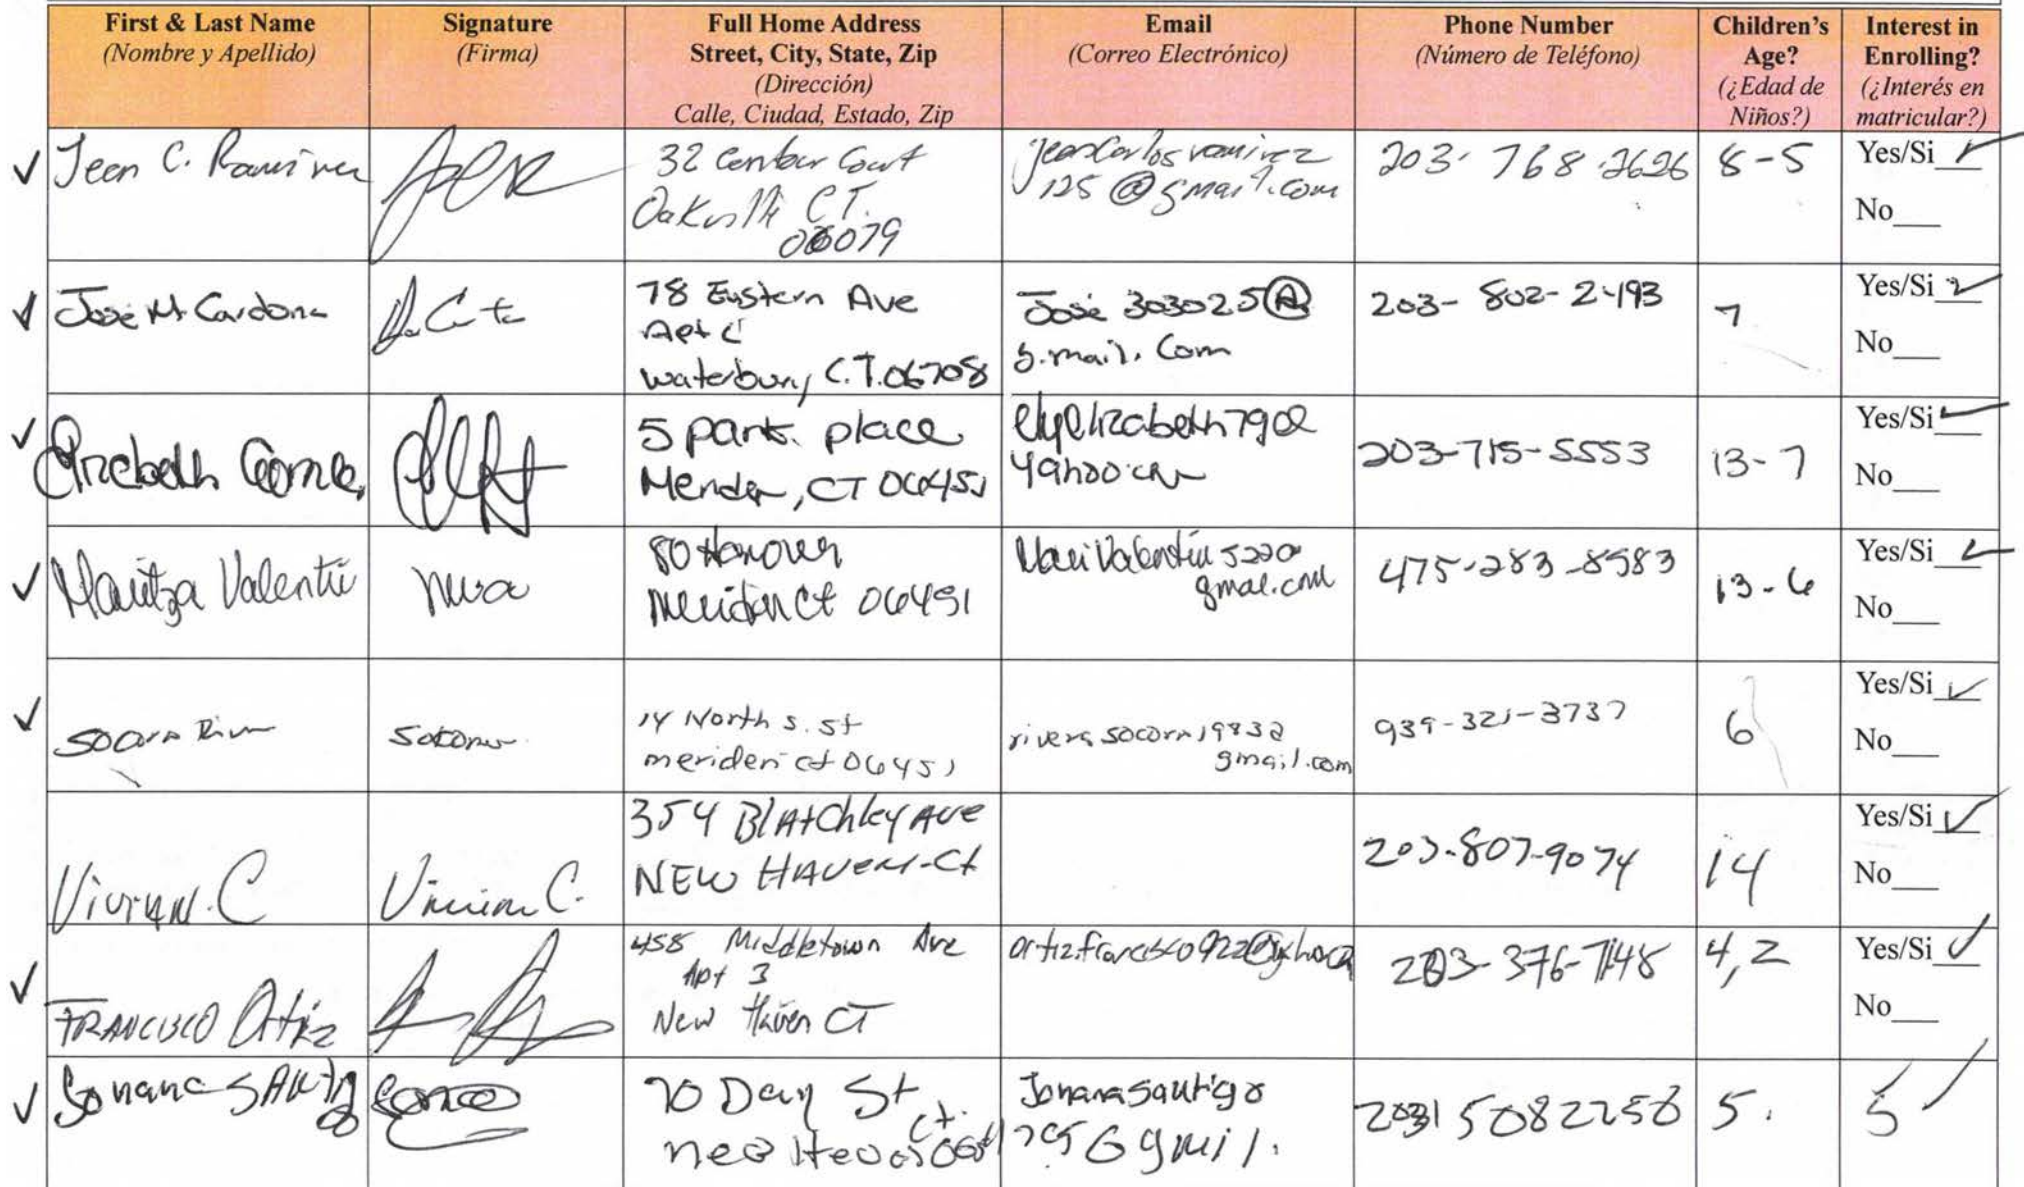 First & Last Name
(Nombre y Apellido)
Signature
(Firma)
Full Home Address
Street, City, State, Zip
(Dirección)
Calle, Ciudad, Estado, Zip
Email
(Correo Electrónico)
Phone Number
(Número de Teléfono)
Children's
Age?
(¿Edad de
Niños?)
Interest in
Enrolling?
(¿Interés en
matricular?)
Jean C. Ramirez
32 Court
Oakville CT.
06079
jeancarlosramirez
125@gmail.com
203-768-2626
8-5
Yes/Si
No
Jose M Cardona
78 Eastern Ave
Apt C
Waterbury C.T. 06708
Jose 303025@
g.mail.Com
203-802-2493
7
Yes/Si
No
Elizabeth
5 park place
Meriden, CT 06451
elyelizabeth79@
203-715-5553
13-7
Yes/Si
No
Maritza Valentin
80 Hanover
Meriden Ct 06451
MariValentin522@
gmal.com
475-283-8583
13-6
Yes/Si
No
14 North S. St
meriden ct 06451
gmail.com
939-321-3737
6
Yes/Si
No
Vivian C
Vivian C.
354 Blatchley Ave
New Haven-Ct
203-807-9074
14
Yes/Si
No
Francisco Ortiz
458 Middletown Ave
Apt 3
New Haven CT
ortiz.francisco922@
203-376-7148
4,2
Yes/Si
No
70 Day St
Ct.
203 5082258
5.
5